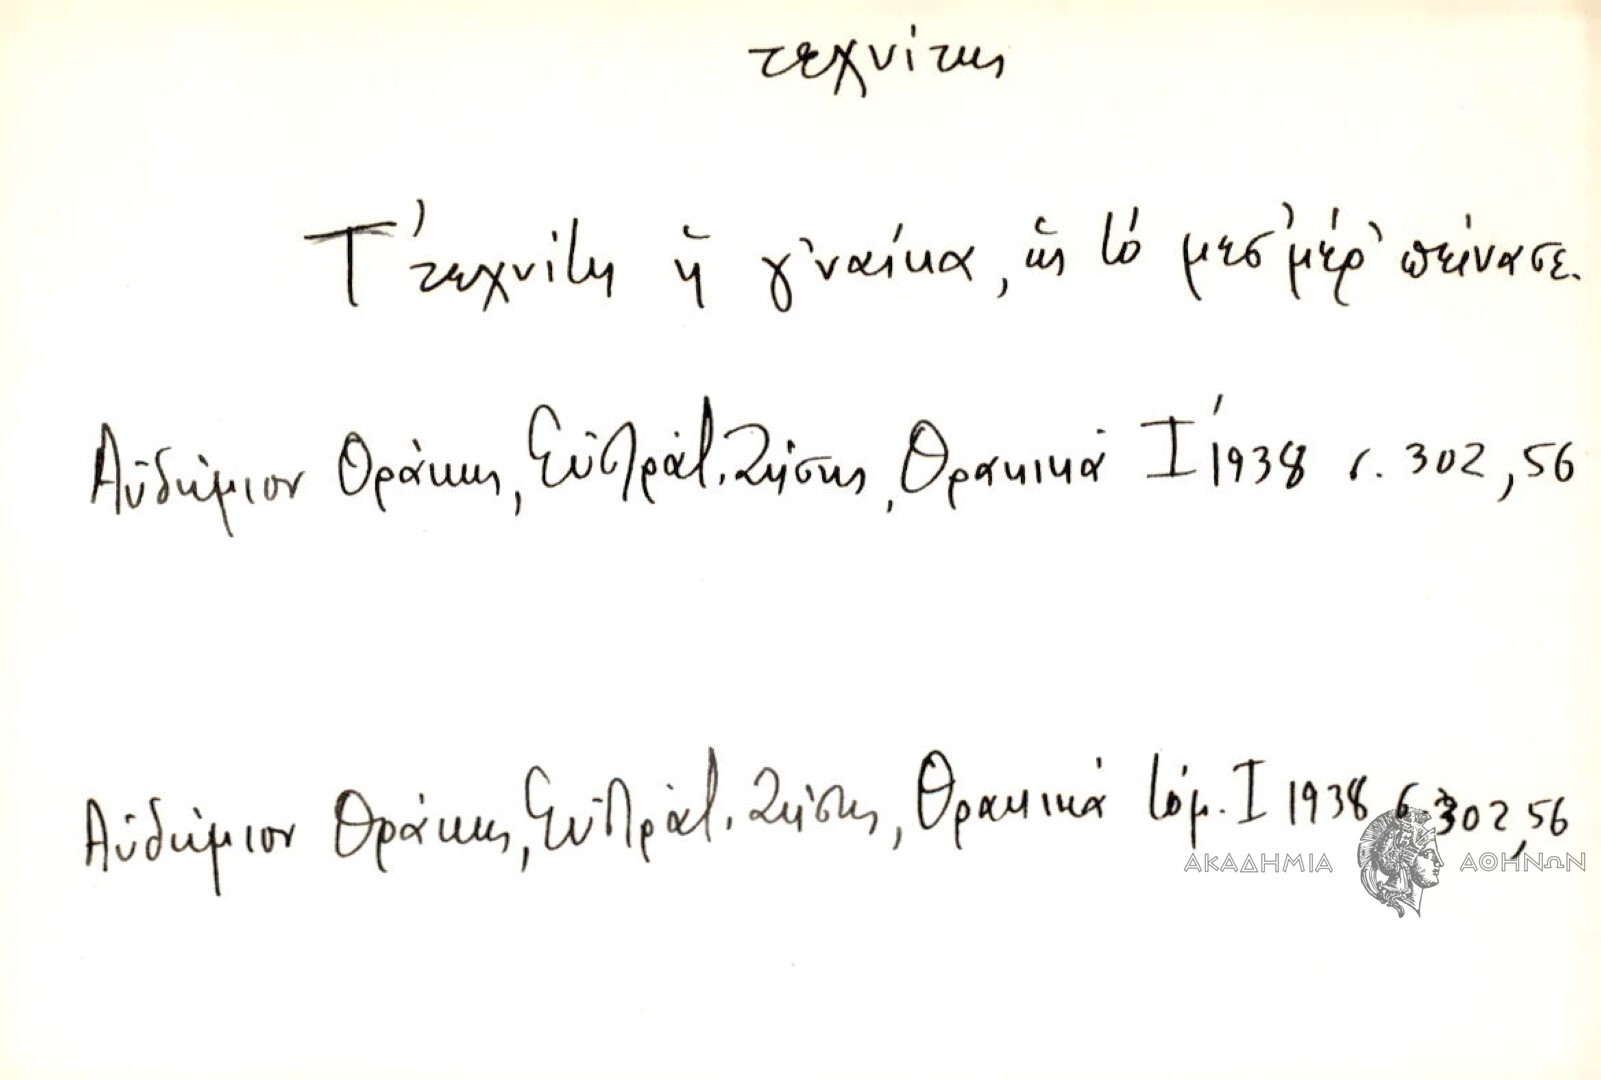 τεχνίτης
Τ' τεχνίτη ἡ γ'ναίκα, ὡς τό μεσ'μέρ' πείνασε.
Αὐδήμιον Θράκης, Εὐστράτ. Ζήσης, Θρακικά Ι' 1938 σ. 302, 56
Αὐδήμιον Θράκης, Εὐστράτ. Ζήσης, Θρακικά τόμ. Ι 1938 σ. 302, 56
ΑΚΑΔΗΜΙΑ ΑΘΗΝΩΝ